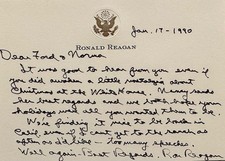 Jan. 17-1990
RONALD REAGAN
Dear Ford & Norma
It was good to hear from you even if
you did awaken a little nostalgia about
Christmas at the White House. Nancy sends
her best regards and we both hope your
holidays will all you wanted them to be.
We're finding it nice to be back in
Calif. even if I can't get to the ranch as
often as I'd like — too many speeches.
Well again. Best Regards, Ron Reagan